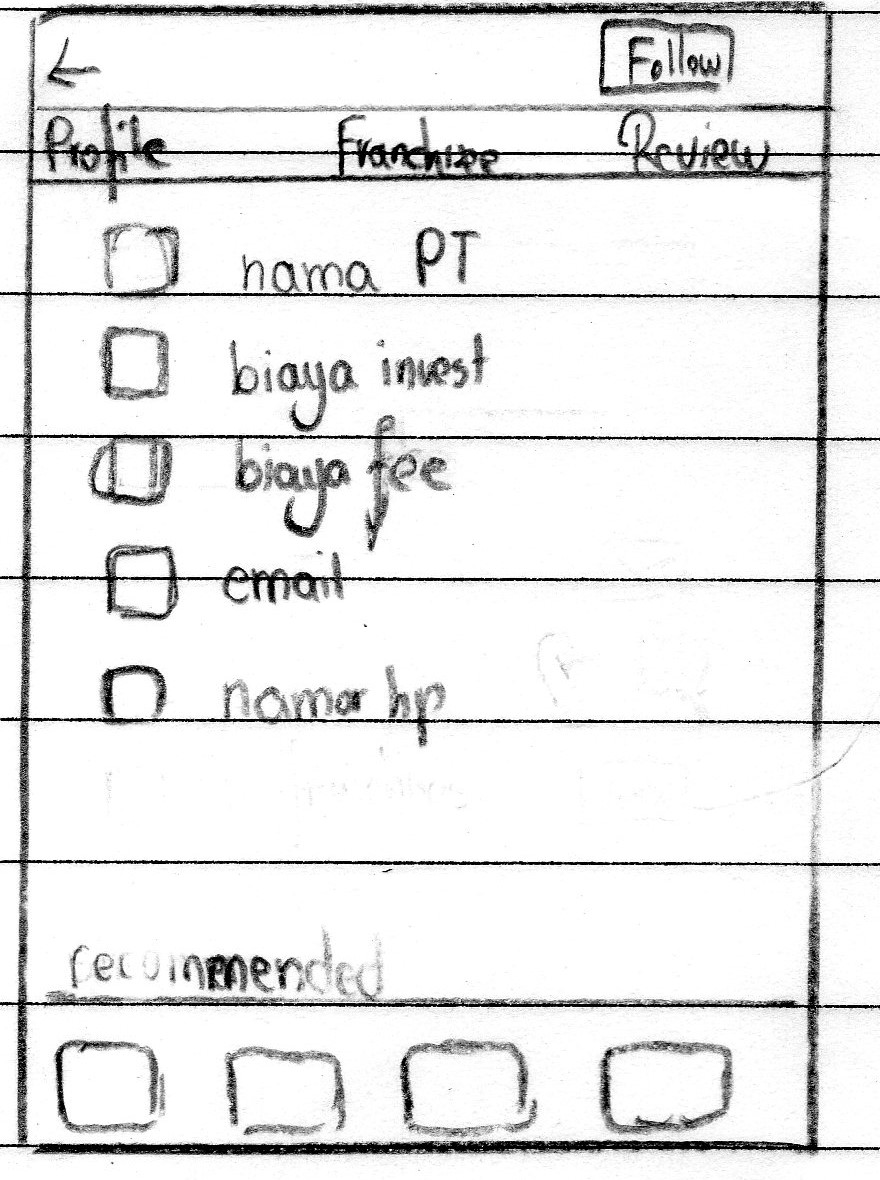 Follow
Profile Franchize Review
nama PT
biaya invest
biaya fee
email
nomor hp
recommended